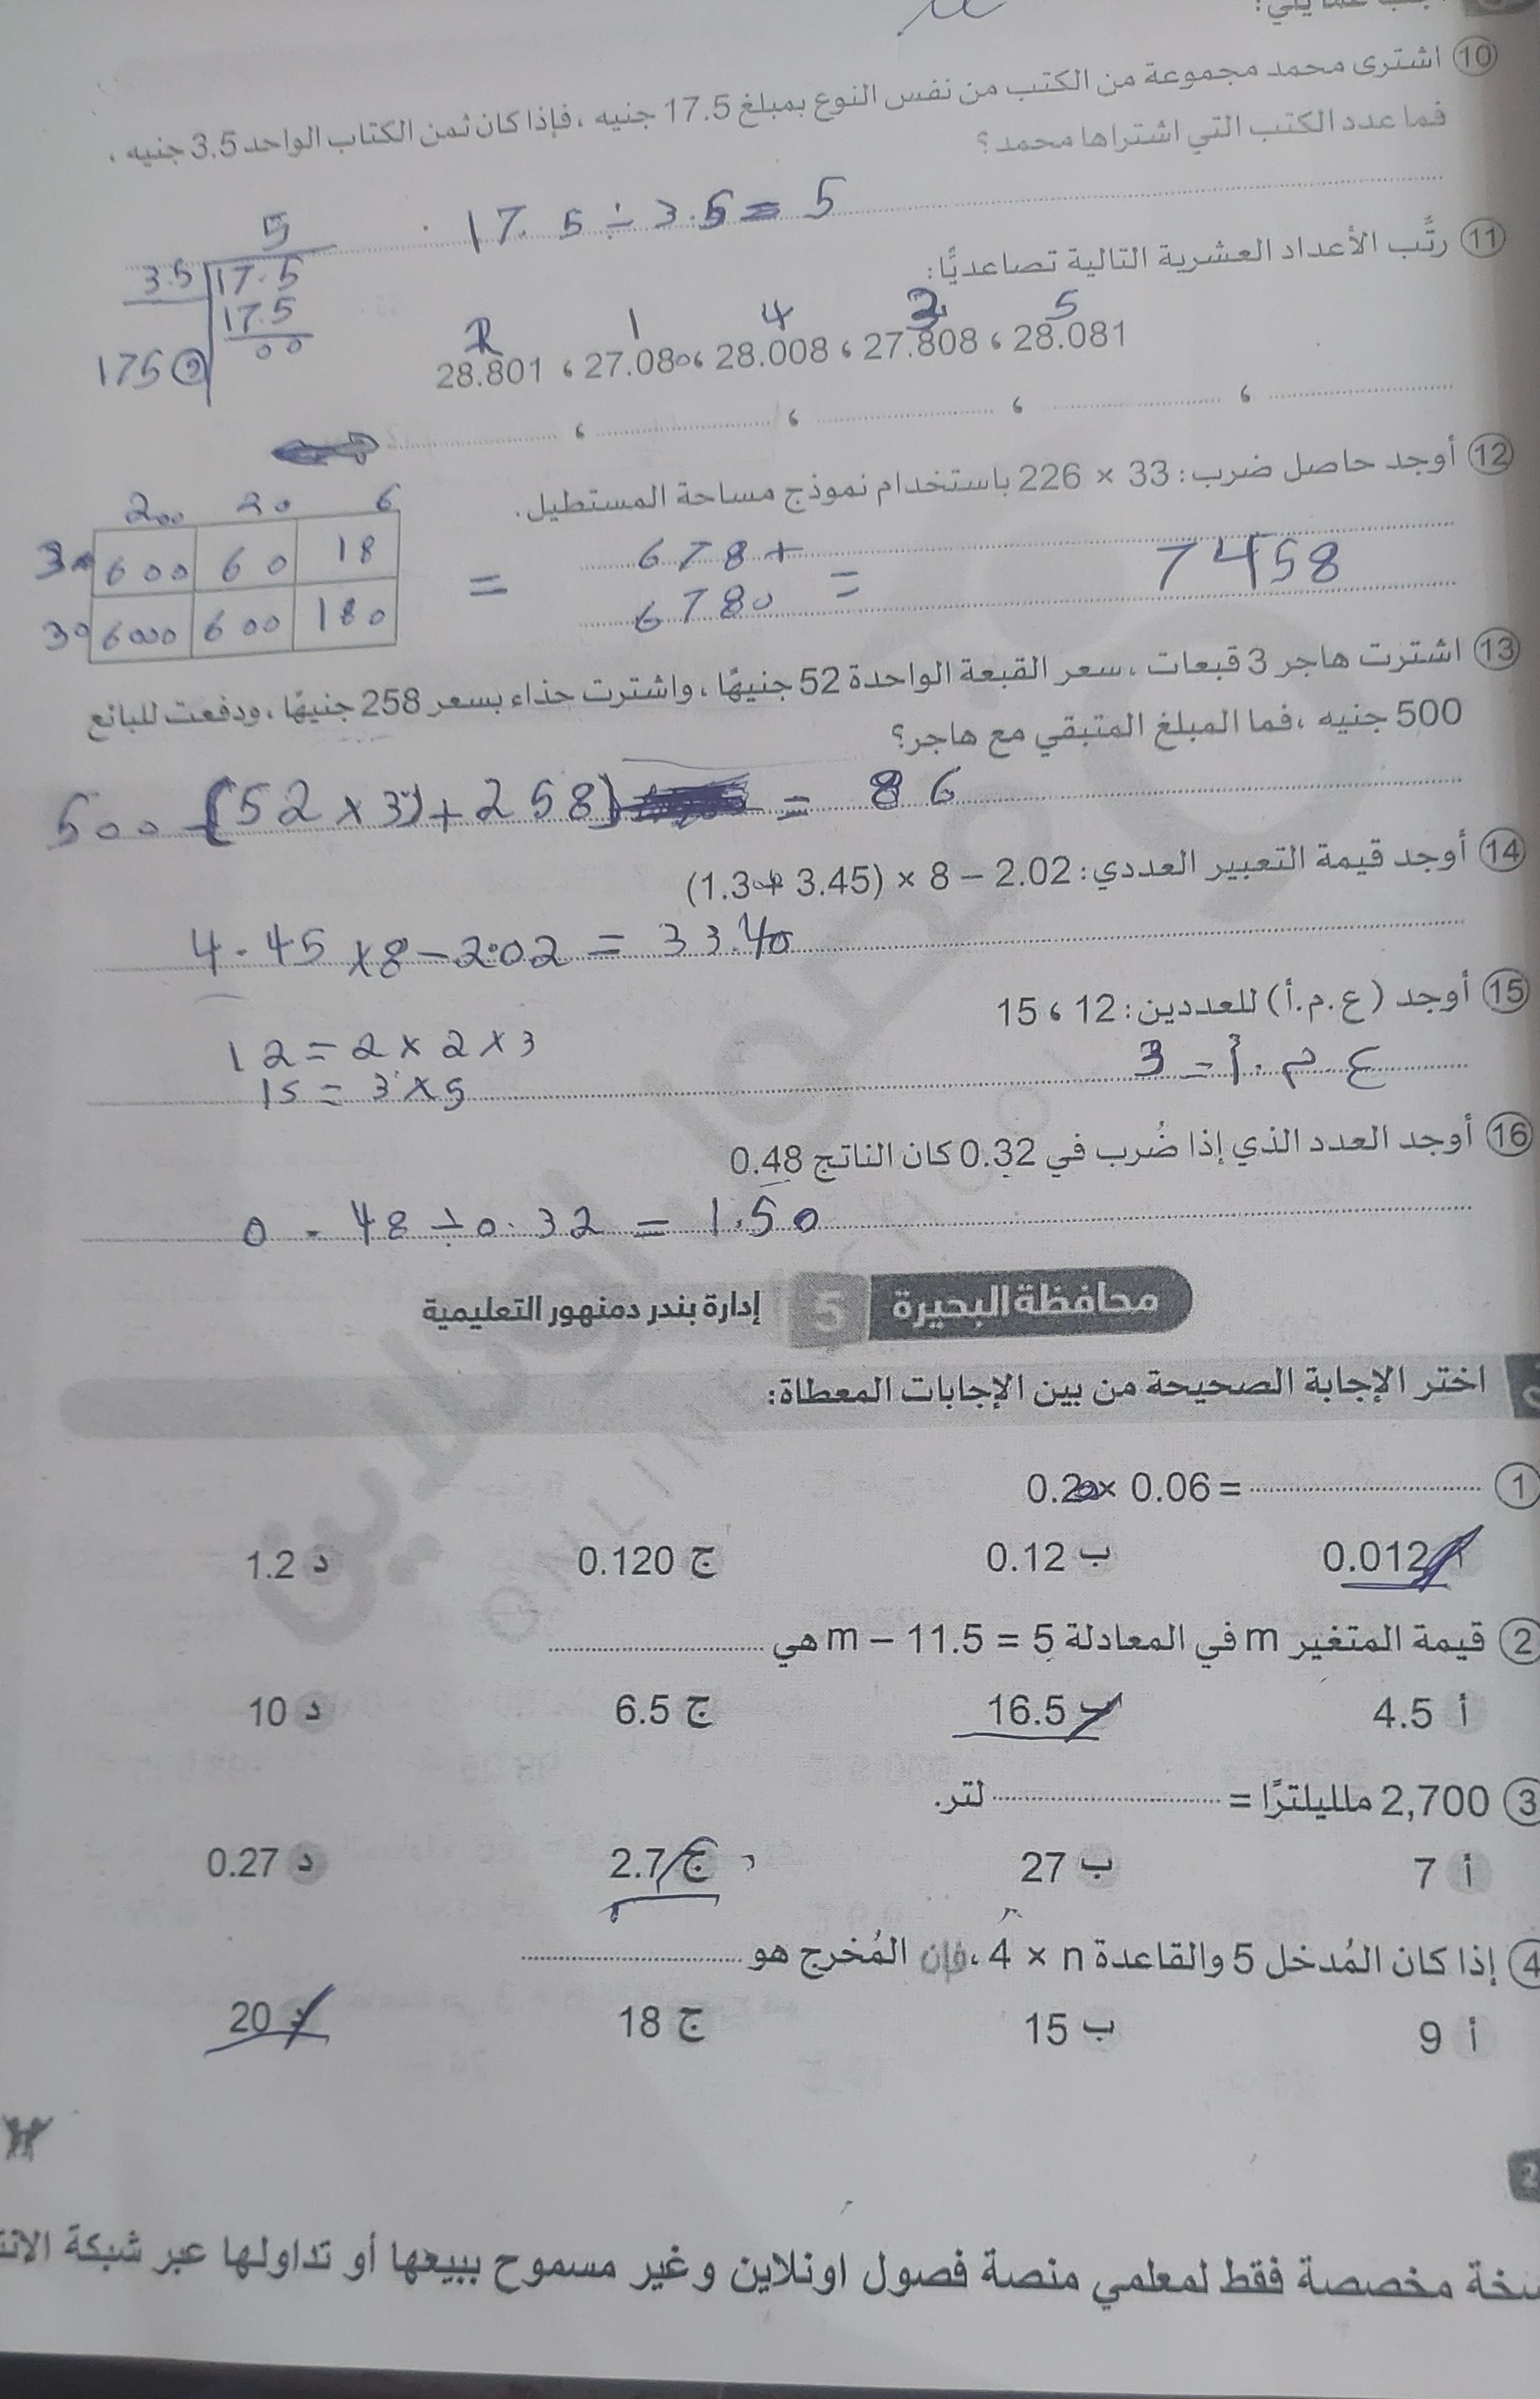 ⑩ اشترى محمد مجموعة من الكتب من نفس النوع بمبلغ 17.5 جنيه ، فإذا كان ثمن الكتاب الواحد 3.5 جنيه ،
فما عدد الكتب التي اشتراها محمد؟
17.5 ÷ 3.5 = 5
5
3.5 17.5
17.5
00
175
⑪ رتِّب الأعداد العشرية التالية تصاعديًّا:
1 4 5
28.801 ، 27.080 ، 28.008 ، 27.808 ، 28.081
⑫ أوجد حاصل ضرب: 33 × 226 باستخدام نموذج مساحة المستطيل.
200 20 6
3 600 60 18
30 6000 600 180
= 678 + 6780 = 7458
⑬ اشترت هاجر 3 قبعات ، سعر القبعة الواحدة 52 جنيهًا ، واشترت حذاء بسعر 258 جنيهًا ، ودفعت للبائع
500 جنيه ، فما المبلغ المتبقي مع هاجر؟
500 - (52 × 3) + 258) = 86
⑭ أوجد قيمة التعبير العددي: (1.3 + 3.45) × 8 – 2.02
4.45 × 8 - 2.02 = 33.40
⑮ أوجد (ع.م.أ) للعددين: 12 ، 15
12 = 2 × 2 × 3
15 = 3 × 5
ع.م.أ = 3
⑯ أوجد العدد الذي إذا ضُرب في 0.32 كان الناتج 0.48
0.48 ÷ 0.32 = 1.50
محافظة البحيرة 5 إدارة بندر دمنهور التعليمية
اختر الإجابة الصحيحة من بين الإجابات المعطاة:
① 0.20 × 0.06 =
0.012 ب 0.12 ج 0.120 د 1.2
② قيمة المتغير m في المعادلة m – 11.5 = 5 هي
أ 4.5 ب 16.5 ج 6.5 د 10
③ 2,700 ملليلترًا = لتر.
أ 7 ب 27 ج 2.7 د 0.27
④ إذا كان المُدخل 5 والقاعدة 4 × n ، فإن المُخرج هو
أ 9 ب 15 ج 18 د 20
مخصصة فقط لمعلمي منصة فصول اونلاين وغير مسموح ببيعها أو تداولها عبر شبكة